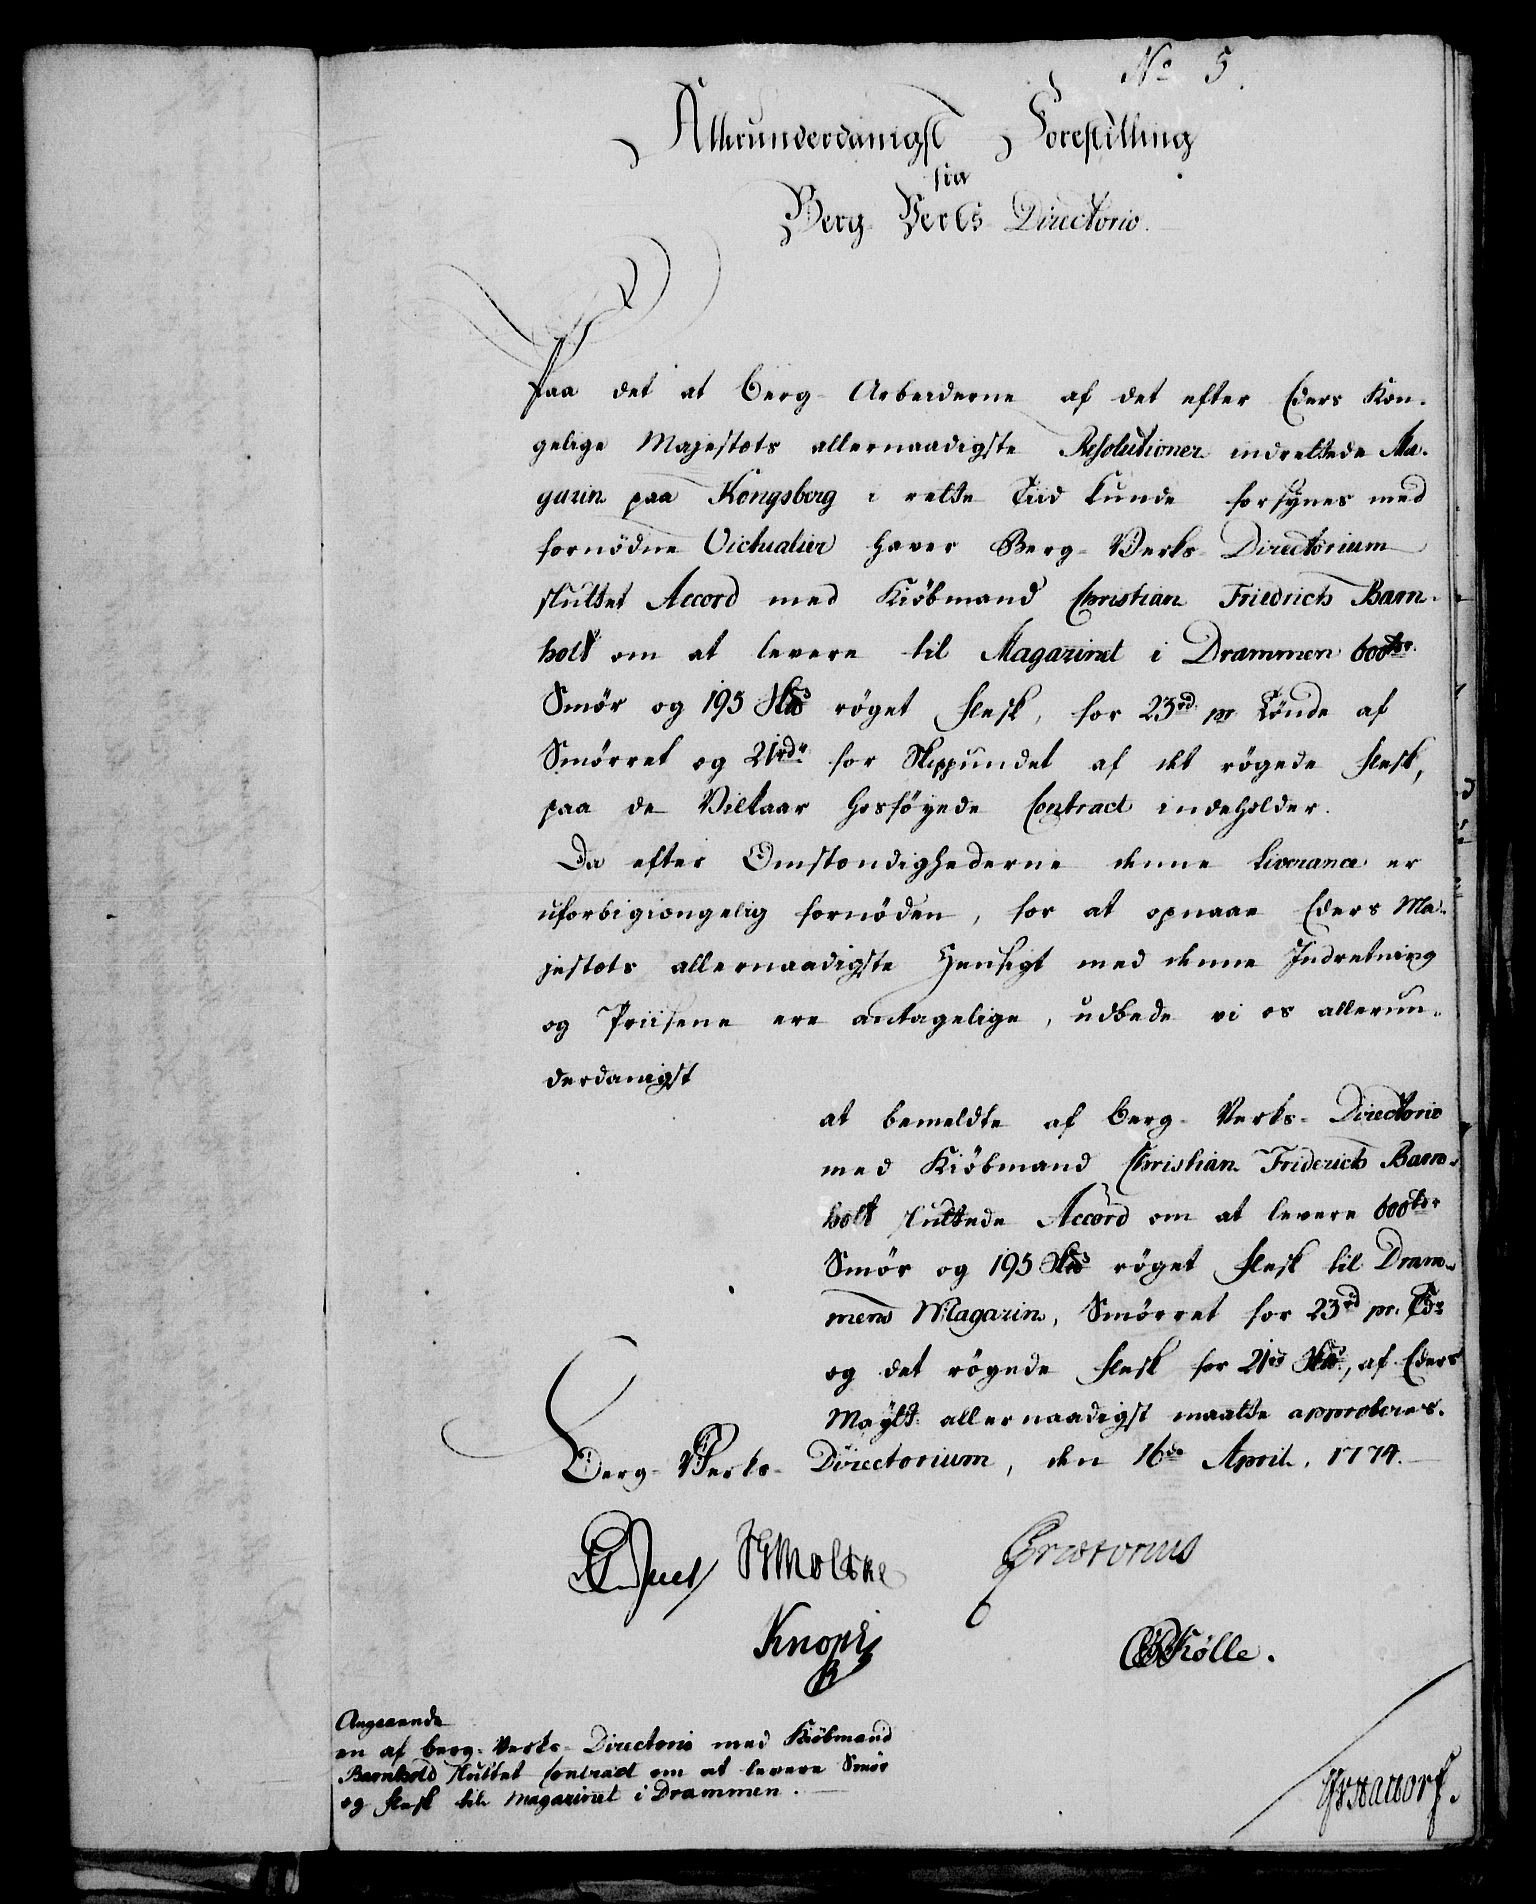 No 5.
Allerunderdanigst Forestilling
fra
Berg-Verks Directorio.
Paa det at Berg-Arbeiderne af det efter Eders Kon-
gelige Majestæts allernaadigste Resolutioner indrettede Ma-
gazin paa Kongsberg i rette Tiid kunde forsynes med
fornödne Victualier haver Berg-Verks-Directorium
sluttet Accord med Kiöbmand Christian Friedrich Barn-
holt om at levere til Magazinet i Drammen 600 tdr.
Smör og 195 Sk℔ röget Flesk, for 23 rd. pr Tönde af
Smörret og 21 rdr. for Skippundet af det rögede Flesk,
paa de Vilkaar hosföyede Contract indeholder.
Da efter Omstændighederne denne Liverance er
uforbigiængelig fornöden, for at opnaae Eders Ma-
jestæts allernaadigste Hensigt med denne Indretning
og Priisene ere antagelige, udbede vi os allerun-
derdanigst
at bemeldte af Berg-Verks-Directorio
med Kiöbmand Christian Friderich Barn-
holt sluttede Accord om at levere 600 tdr
Smör og 195 Sk℔ röget Flesk til Dram-
mens Magazin, Smörret for 23 rd pr. Tdr
og det rögede Flesk for 21 rd Sk℔, af Eders
Maÿtt allernaadigst maatte approberes.
Berg-Verks-Directorium, den 16de April. 1774.
Juel Moltke Prætorius
Knoph Kölle.
Angaaende
en af Berg-Verks-Directorio med Kiöbmand
Barnhold sluttet Contract om at levere Smör
og Flesk til Magazinet i Drammen.